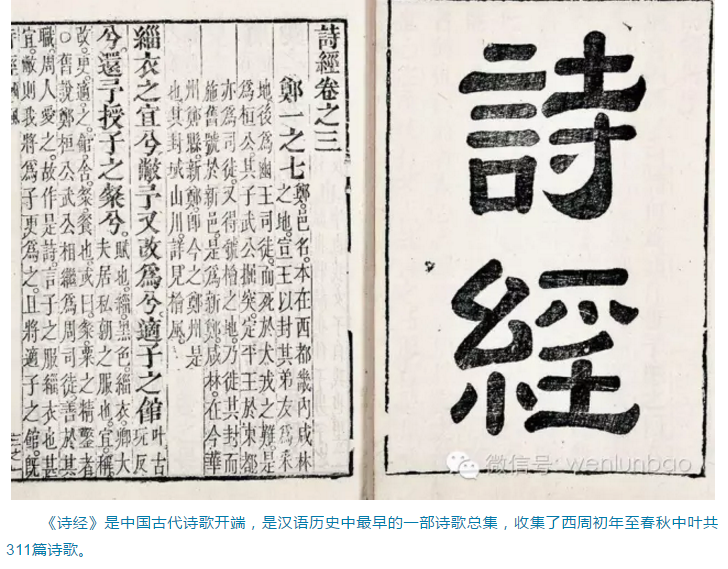 詩
經
詩經卷之三
鄭一之七
鄭。邑名。本在西都畿內咸林
之地。宣王以封其弟友為采
地後為幽王司徒。而死於犬戎之難。是
為桓公。其子武公掘突。定平王於東都
亦為司徒。又得虢檜之地。乃徙其封而
施舊號於新邑。是為新鄭。咸林。在今華
州鄭縣。新鄭。即今之鄭州是
也。其封域山川。詳見檜風。
緇衣之宜兮敝予又改為兮。適子之館叶古玩反
兮還予授子之粲兮。賦也。緇黑色。緇衣。卿大
夫居私朝之服也。宜。稱
改。更。適。之。館。舍。粲。餐也。或曰。粲。粟之精鑿者
○舊說鄭桓公武公相繼為周司徒。善於其
職。周人愛之。故作是詩。言子之服緇衣也甚
宜。敝則我將為子更為之。且將適子之館。既
微信号: wenlunbao
《诗经》是中国古代诗歌开端，是汉语历史中最早的一部诗歌总集，收集了西周初年至春秋中叶共
311篇诗歌。